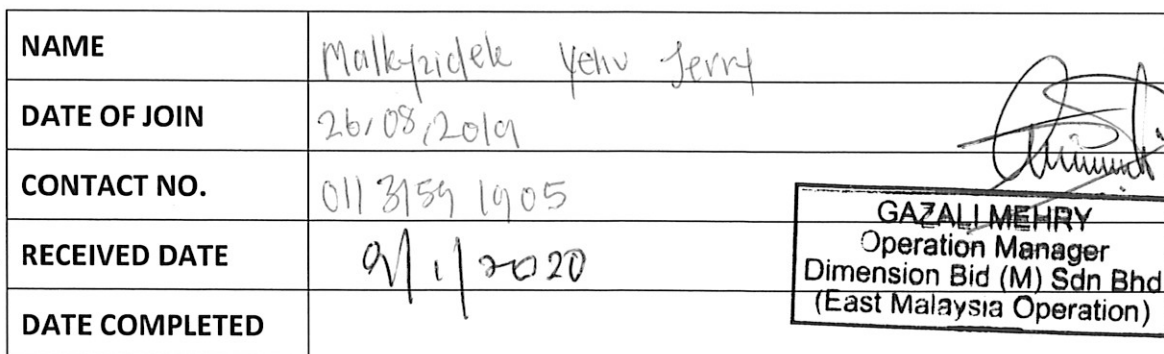 NAME Malkyzidek Yehu Jerry
DATE OF JOIN 26/08/2019
CONTACT NO. 011 3159 1905
RECEIVED DATE 9/1/2020
GAZALI MEHRY
Operation Manager
Dimension Bid (M) Sdn Bhd
(East Malaysia Operation)
DATE COMPLETED